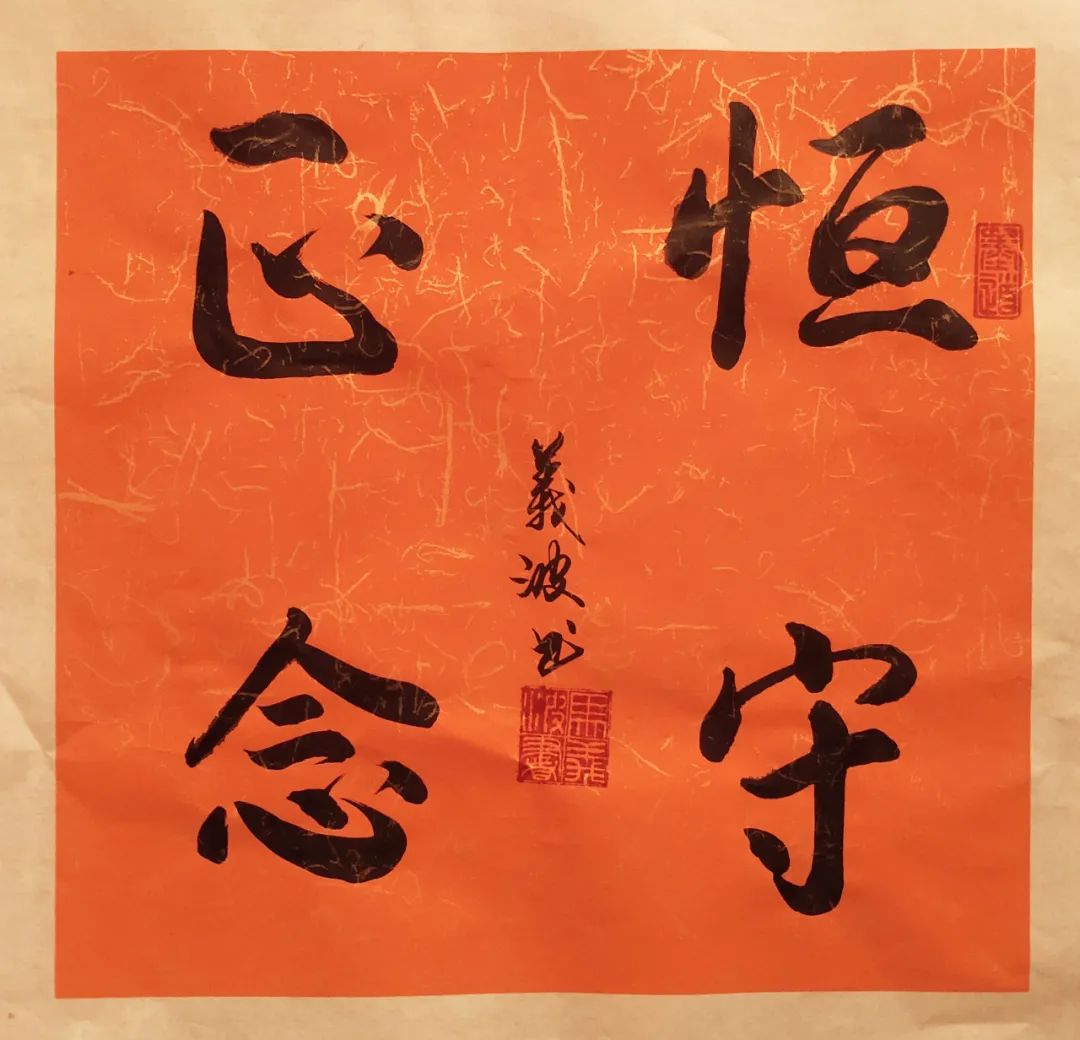 恒守
正念
義波书